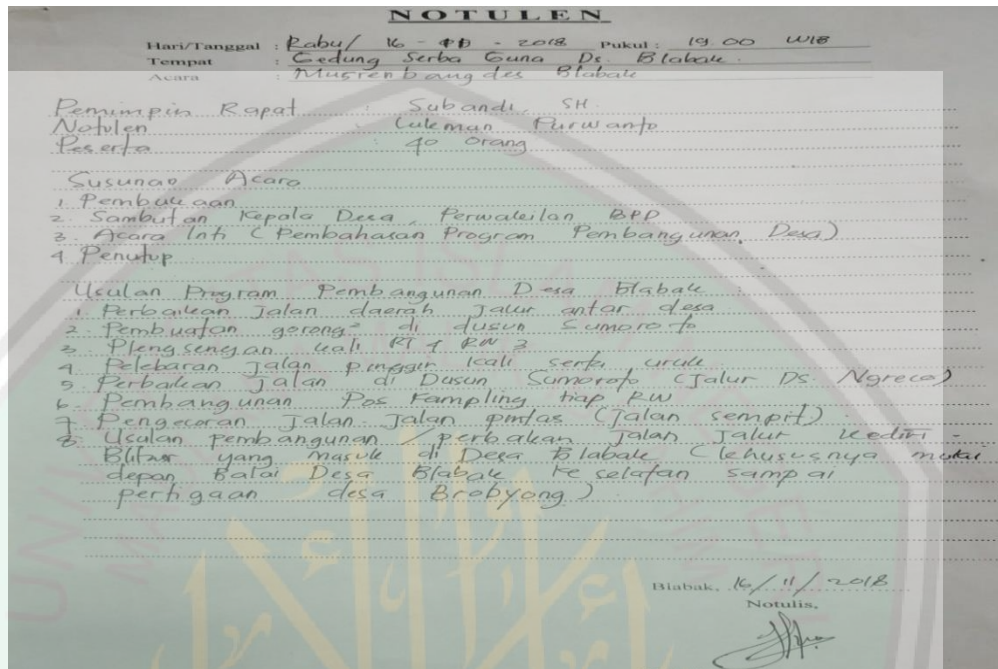 NOTULEN
Hari/Tanggal : Rabu/ 16 - - 2018 Pukul : 19.00 WIB
Tempat : Gedung Serba Guna Ds. Blabak.
Acara : Musrenbangdes Blabak
Pemimpin Rapat : Subandi, SH.
Notulen Lukman Purwanto
Peserta : 40 orang
Susunan Acara
1. Pembukaan
2. Sambutan Kepala Desa, Perwakilan BPD
3. Acara Inti (Pembahasan Program Pembangunan Desa)
4. Penutup
Usulan Program Pembangunan Desa Blabak :
1. Perbaikan Jalan daerah Jalur antar desa
2. Pembuatan gorong² di dusun Sumoroto
3. Plengsengan kali RT 4 RW 3
4. Pelebaran jalan pinggir kali serta uruk
5. Perbaikan Jalan di Dusun Sumoroto (Jalur Ds. Ngreco)
6. Pembangunan Pos Kampling tiap RW
7. Pengecoran Jalan Jalan pintas (Jalan sempit).
8. Usulan pembangunan / perbakan Jalan Jalur Kediri -
Blitar yang masuk di Desa Blabak (khususnya mulai
depan Balai Desa Blabak ke selatan sampai
pertigaan desa Brobyong)
Blabak, 16/11/2018
Notulis,